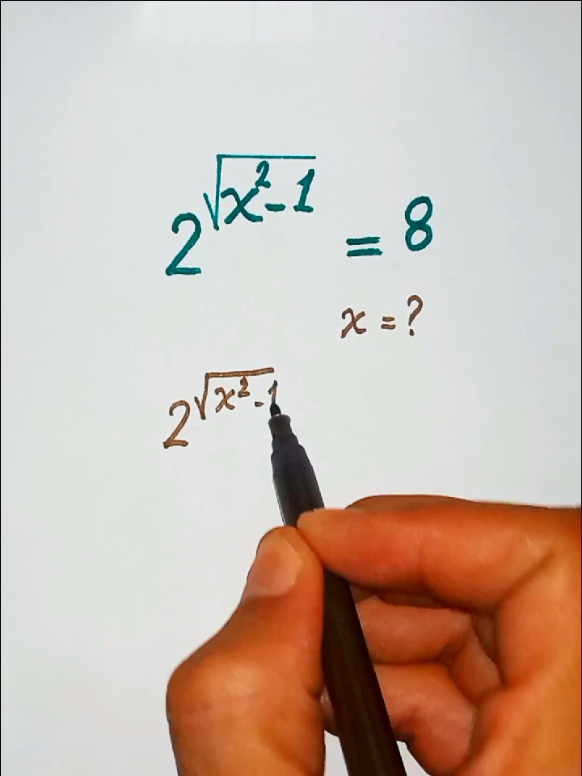 2^√(x²-1) = 8
x = ?
2^√(x²-1)